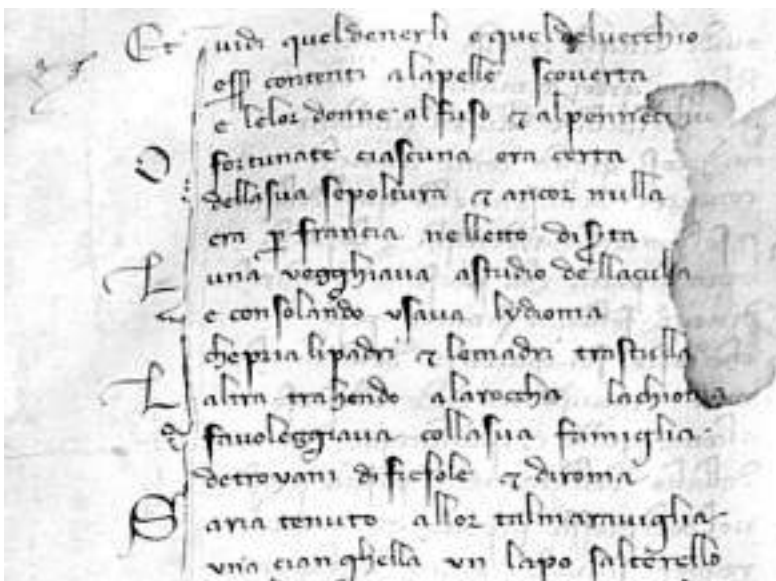 Et vidi quel denerli e quel deluecchio
essi contenti alapelle scouerta
e lelor donne alfuso ⁊ alpennecchio
O fortunate ciascuna era certa
dellasua sepoltura ⁊ ancor nulla
era ꝑ francia nelletto diserta
L una vegghiaua astudio dellaculla
e consolando vsaua lydioma
chepria lipadri ⁊ lemadri trastulla
L altra trahendo alaroccha lachioma
fauoleggiaua collasua famiglia
detroyani difiesole ⁊ diroma
S aria tenuto allor talmarauiglia
vna cianghella vn lapo salterello